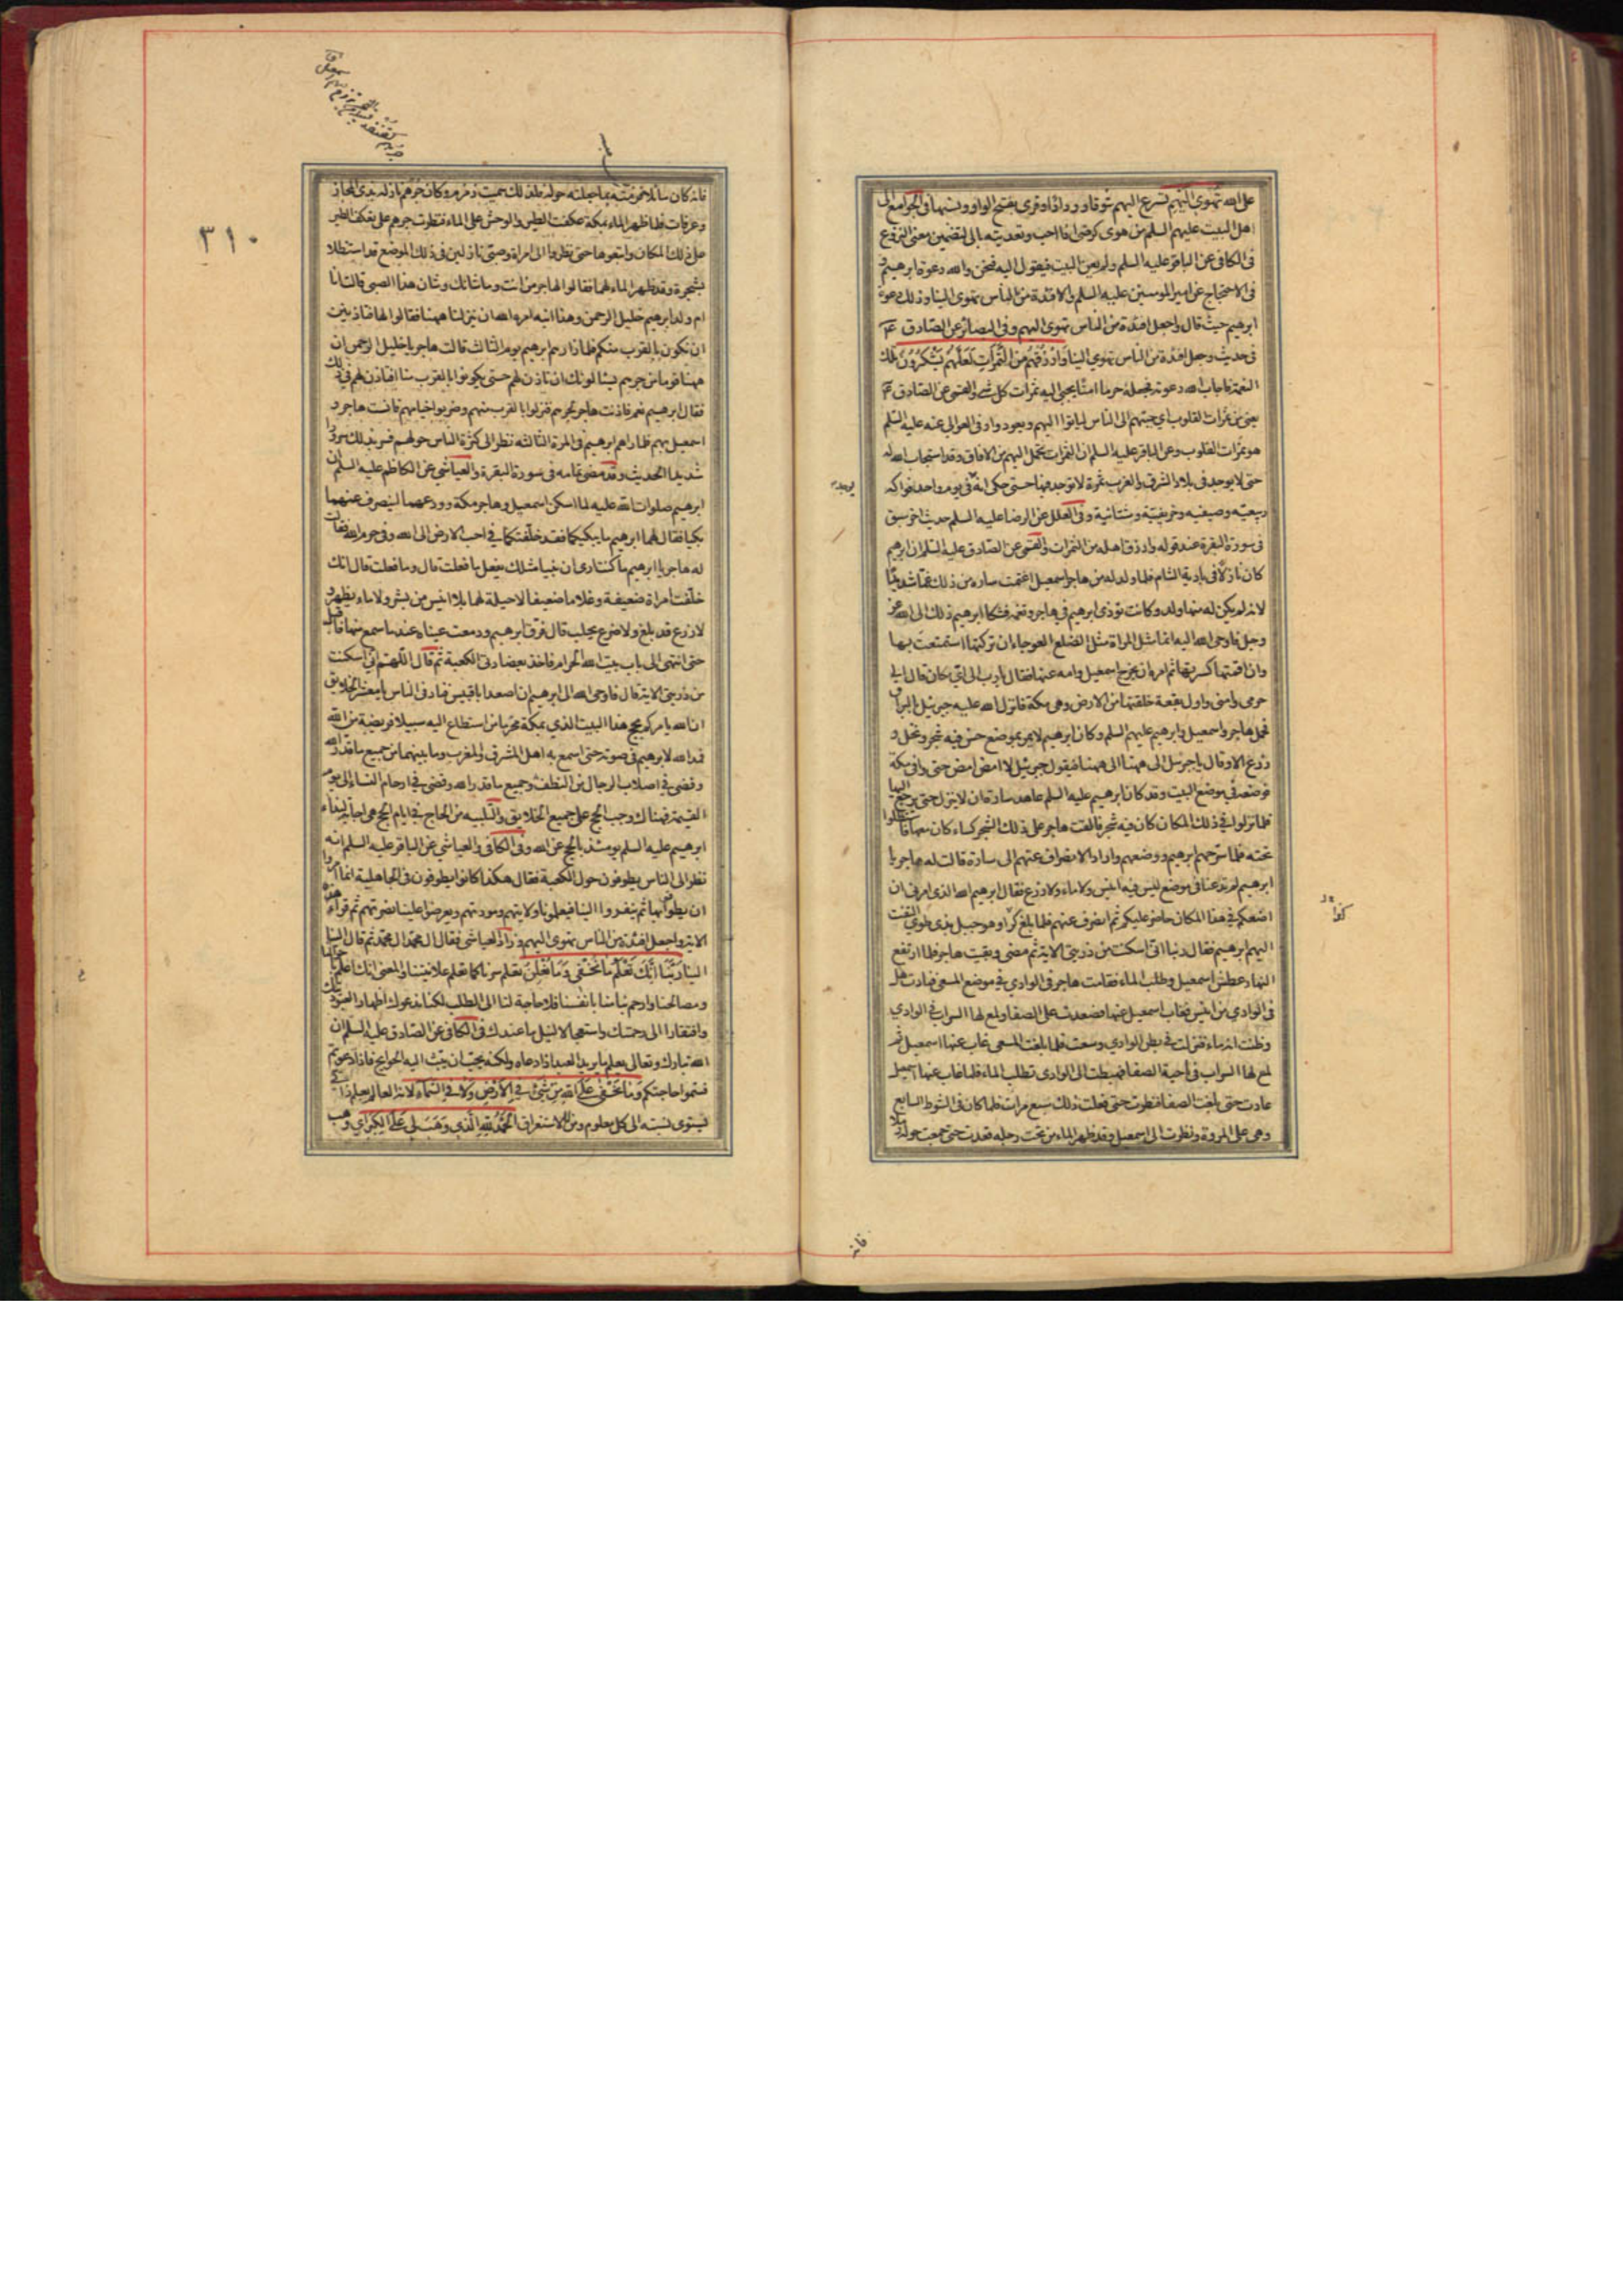 على الله تهوى اليهم تسرع اليهم شوقا وودادا وقرئ بفتح الواو ونسبها في الجوامع الى
اهل البيت عليهم السلم من هوى كرضى اذا احب وتعديته بالى لتضمين معنى النزوع
في الكافي عن الباقر عليه السلم ولم يعن البيت فيقول اليه فنحن والله دعوة ابرهيم و
في الاحتجاج عن امير المومنين عليه السلم والافئدة من الناس تهوى الينا وذلك دعوة
ابرهيم حيث قال واجعل افئدة من الناس تهوى اليهم وفي البصائر عن الصادق ع
في حديث وجعل افئدة من الناس تهوي الينا وَارْزُقْهُمْ مِنَ الثَّمَرَاتِ لَعَلَّهُمْ يَشْكُرُونَ تلك
النعمة فاجاب الله دعوته فجعله حرما امنا يجبى اليه ثمرات كل شئ والقمى عن الصادق ع
يعني من ثمرات القلوب اي حببهم الى الناس لياتوا اليهم ويعودوا وفي العوالي عنه عليه السلم
هو ثمرات القلوب وعن الباقر عليه السلم ان الثمرات تحمل اليهم من الافاق وقد استجاب الله له
حتى لا يوجد في بلاد الشرق والغرب ثمرة لا توجد فيها حتى حكى انه في يوم واحد فواكه
ربيعية وصيفية وخريفية وشتائية وفي العلل عن الرضا عليه السلم حديث اخر سبق
في سورة البقرة عند قوله وارزق اهله من الثمرات والقمى عن الصادق عليه السلم ان ابرهيم
كان نازلا في بادية الشام فلما ولد له من هاجر اسمعيل اغتمت ساره من ذلك غما شديدا
لانه لم يكن له منها ولد وكانت توذى ابرهيم في هاجر وتغمه فشكا ابرهيم ذلك الى الله عز
وجل فاوحى الله اليه انما مثل المراة مثل الضلع العوجاء ان تركتها استمتعت بها
وان اقمتها كسرتها ثم امره ان يخرج اسمعيل وامه عنها فقال يا رب الى اي مكان قال الى
حرمي وامني واول بقعة خلقتها من الارض وهي مكة فانزل الله عليه جبرئيل بالبراق
فحمل هاجر واسمعيل وابرهيم عليهم السلم وكان ابرهيم لا يمر بموضع حسن فيه شجر ونخل و
زرع الا وقال يا جبرئيل الى ههنا الى ههنا فيقول جبرئيل لا امض امض حتى وافى مكة
فوضعه في موضع البيت وقد كان ابرهيم عليه السلم عاهد سارة ان لا ينزل حتى يرجع اليها
فلما نزلوا في ذلك المكان كان فيه شجر فالقت هاجر على ذلك الشجر كساء كان معها فاستظلوا
تحته فلما سرحهم ابرهيم ووضعهم واراد الانصراف عنهم الى سارة قالت له هاجر يا
ابرهيم لم تدعنا في موضع ليس فيه انيس ولا ماء ولا زرع فقال ابرهيم الله الذي امرني ان
اضعكم في هذا المكان حاضر عليكم ثم انصرف عنهم فلما بلغ كرا وهو جبل بذي طوى التفت
اليهم ابرهيم فقال ربنا اني اسكنت من ذريتي الاية ثم مضى وبقيت هاجر فلما ارتفع
النهار عطش اسمعيل وطلب الماء فقامت هاجر في الوادي في موضع المسعى فنادت هل
في الوادي من انيس فغاب اسمعيل عنها فصعدت على الصفا ولمع لها السراب في الوادي
وظنت انه ماء فنزلت في بطن الوادي وسعت فلما بلغت المسعى غاب عنها اسمعيل ثم
لمع لها السراب في ناحية الصفا فهبطت الى الوادي تطلب الماء فلما غاب عنها اسمعيل
عادت حتى بلغت الصفا فنظرت حتى فعلت ذلك سبع مرات فلما كان في الشوط السابع
وهي على المروة ونظرت الى اسمعيل وقد ظهر الماء من تحت رجله فعدت حتى جمعت حوله رملا
فانه
٣١٠
فانه كان سائلا فزمته بما جعلته حوله فلذلك سميت زمزم وكان جرهم نازلة بذي المجاز
وعرفات فلما ظهر الماء بمكة عكفت الطير والوحش على الماء فنظرت جرهم على تعكف الطير
على ذلك المكان واتبعوها حتى نظروا الى امراة وصبي نازلين في ذلك الموضع قد استظلا
بشجرة وقد ظهر الماء لهما فقالوا لهاجر من انت وما شانك وشان هذا الصبي قالت انا
ام ولد ابرهيم خليل الرحمن وهذا ابنه امره الله ان ينزلنا ههنا فقالوا لها فتاذنين
ان نكون بالقرب منكم فلما زارهم ابرهيم يوم الثالث قالت هاجر يا خليل الرحمن ان
ههنا قوما من جرهم يسالونك ان تاذن لهم حتى يكونوا بالقرب منا افتاذن لهم في ذلك
فقال ابرهيم نعم فاذنت هاجر لجرهم فنزلوا بالقرب منهم وضربوا خيامهم فانست هاجر و
اسمعيل بهم فلما راهم ابرهيم في المرة الثالثه نظر الى كثرة الناس حولهم فسر بذلك سرورا
شديدا الحديث وقد مضى تمامه في سورة البقرة والعياشي عن الكاظم عليه السلم ان
ابرهيم صلوات الله عليه لما اسكن اسمعيل وهاجر مكة وودعهما لينصرف عنهما
بكيا فقال لهما ابرهيم ما يبكيكما فقد خلفتكما في احب الارض الى الله وفي حرم الله فقالت
له هاجر يا ابرهيم ما كنت ارى ان نبيا مثلك يفعل ما فعلت قال وما فعلت قال انك
خلفت امراة ضعيفة وغلاما ضعيفا لا حيلة لهما بلا انيس من بشر ولا ماء يظهر و
لا زرع قد بلغ ولا ضرع يحلب قال فرق ابرهيم ودمعت عيناه عند ما سمع منها فاقبل
حتى انتهى الى باب بيت الله الحرام فاخذ بعضادتي الكعبة ثم قال اللهم اني اسكنت
من ذريتي الاية قال فاوحى الله الى ابرهيم ان اصعد ابا قبيس فناد في الناس يا معشر الخلايق
ان الله يامركم بحج هذا البيت الذي بمكة محرما من استطاع اليه سبيلا فريضة من الله
فمد الله لابرهيم في صوته حتى اسمع به اهل المشرق والمغرب وما بينهما من جميع ما قدر الله
وقضى في اصلاب الرجال من النطف وجميع ما قدر الله وقضى في ارحام النساء الى يوم
القيمة فهناك وجب الحج على جميع الخلايق والتلبيه من الحاج في ايام الحج هي اجابة لنداء
ابرهيم عليه السلم يومئذ بالحج عن الله وفي الكافي والعياشي عن الباقر عليه السلم انه
نظر الى الناس يطوفون حول الكعبة فقال هكذا كانوا يطوفون في الجاهلية انما امروا
ان يطوفوا بها ثم ينفروا الينا فيعلمونا ولايتهم ومودتهم ويعرضوا علينا نصرتهم ثم قراء هذه
الاية واجعل افئدة من الناس تهوى اليهم وزاد العياشي فقال ال محمد ال محمد ثم قال الينا
الينا رَبَّنَا اِنَّكَ تَعْلَمُ مَا نُخْفِي وَمَا نُعْلِنُ تعلم سرنا كما تعلم علانيتنا والمعنى انك اعلم باحوالنا
ومصالحنا وارحم بنا منا بانفسنا فلا حاجة لنا الى الطلب لكنا ندعوك اظهارا لعبوديتك
وافتقارا الى رحمتك واستعجالا لنيل ما عندك في الكافي عن الصادق عليه السلم ان
الله تبارك وتعالى يعلم ما يريد العبد اذا دعاه ولكنه يحب ان يبث اليه الحوايج فاذا دعوتم
فسموا حاجتكم وَمَا يَخْفى عَلَى اللهِ مِنْ شَيْئٍ فِي الاَرْضِ وَلا فِي السَّمَاءِ لانه العالم بعلم ذاتي
يستوى نسبته الى كل معلوم ومن للاستغراق اَلْحَمْدُ لِلّهِ الَّذِي وَهَبَ لِي عَلَى الْكِبَرِ اي وهب